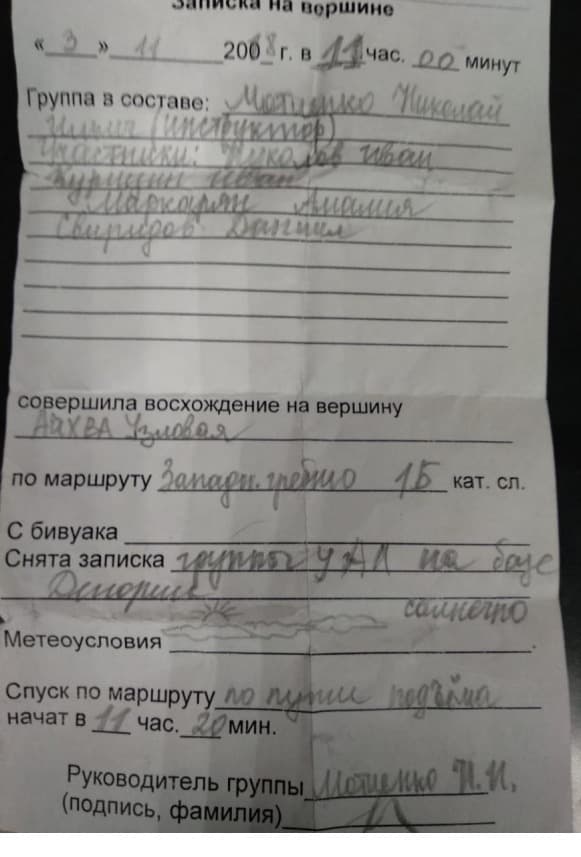 Записка на вершине
« 3 » 11 2008 г. в 11 час. 00 минут
Группа в составе: Мотиенко Николай
Ильич (инструктор)
Участники: Николов Иван
Курицин Иван
Маркарян Амалия
Свиридов Даниил
совершила восхождение на вершину
Айхва Узловая
по маршруту Западн. гребню 1Б кат. сл.
С бивуака
Снята записка группы УАП на базе
солнечно
Метеоусловия
Спуск по маршруту по пути подъёма
начат в 11 час. 20 мин.
Руководитель группы Мотиенко Н.И.
(подпись, фамилия)